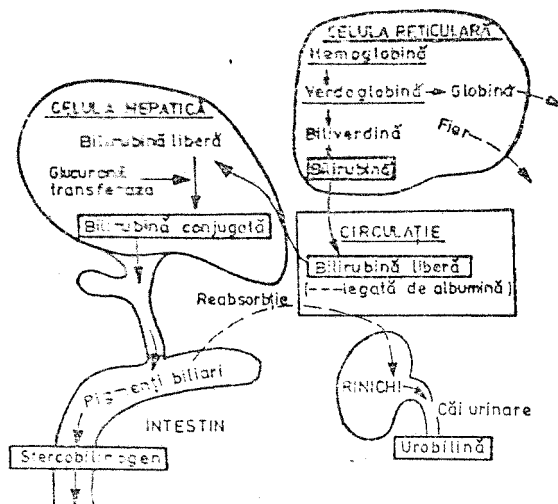 CELULA RETICULARĂ
Hemoglobină
Verdoglobină
Globină
Biliverdina
Fier
Bilirubină
CELULA HEPATICĂ
Bilirubină liberă
Glucuronil
transferaza
Bilirubină conjugată
CIRCULAȚIE
Bilirubină liberă
(---legată de albumină)
Reabsorbție
Pigmenți biliari
INTESTIN
Stercobilinogen
RINICHI
Căi urinare
Urobilină